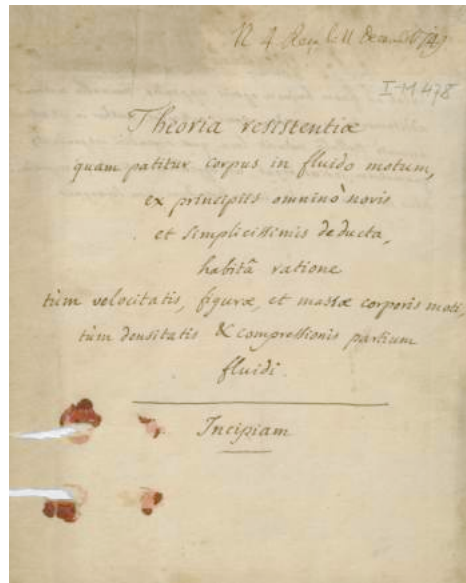 N. 4 Reçu le 11 decembre 1749
I-M 478
Theoria resistentiæ
quam patitur corpus in fluido motum,
ex principiis omninò novis
et simplicissimis deducta,
habitâ ratione
tùm velocitatis, figuræ, et massæ corporis moti,
tùm densitatis & compressionis partium
fluidi.
Incipiam